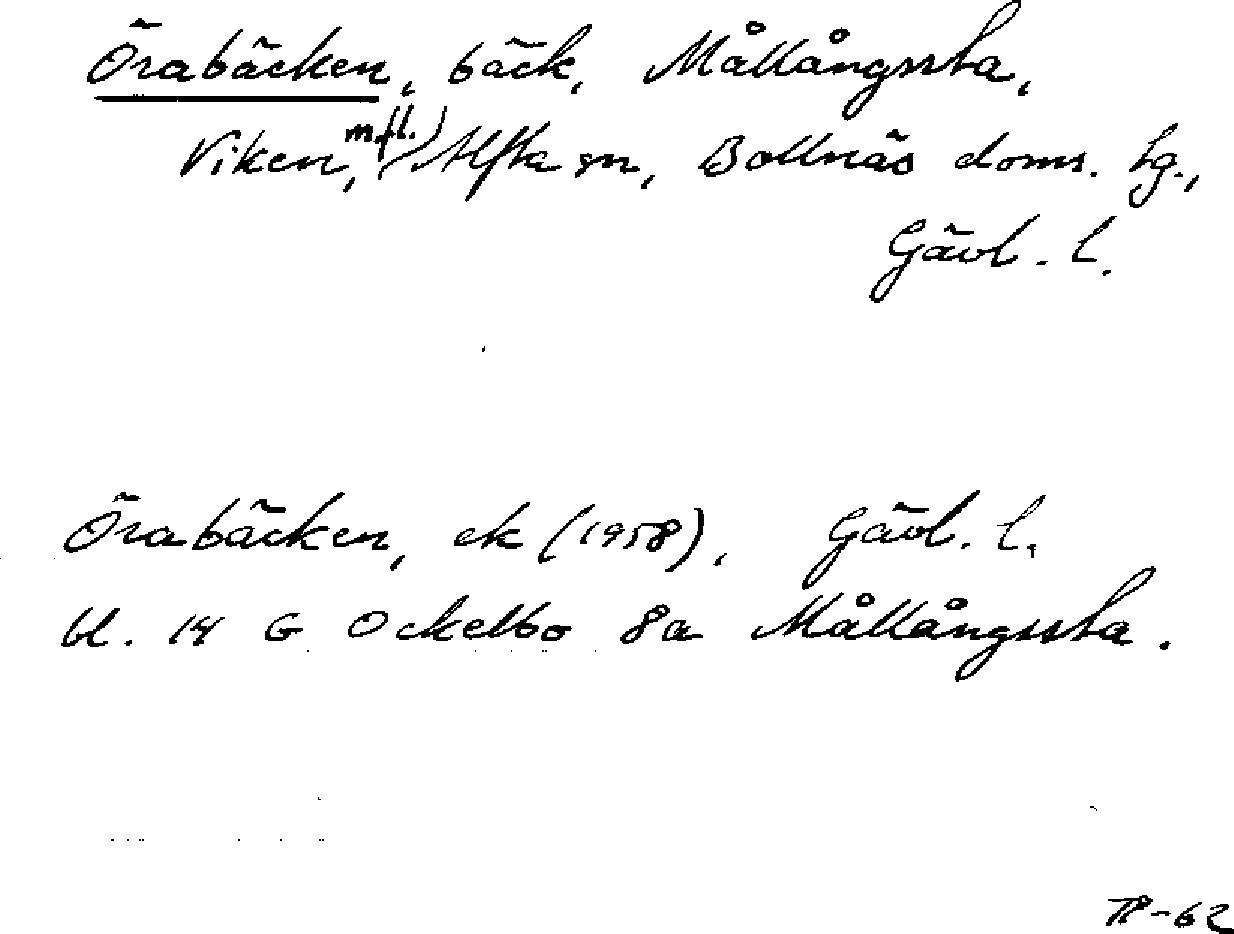 Örabäcken, bäck, Mållångssta,
Viken, (m.fl.) Alfta sn, Bollnäs doms. tg.,
Gävl. l.
Örabäcken, ek (1958), Gävl. l.
bl. 14 G Ockelbo 8a Mållångssta.
TP-62